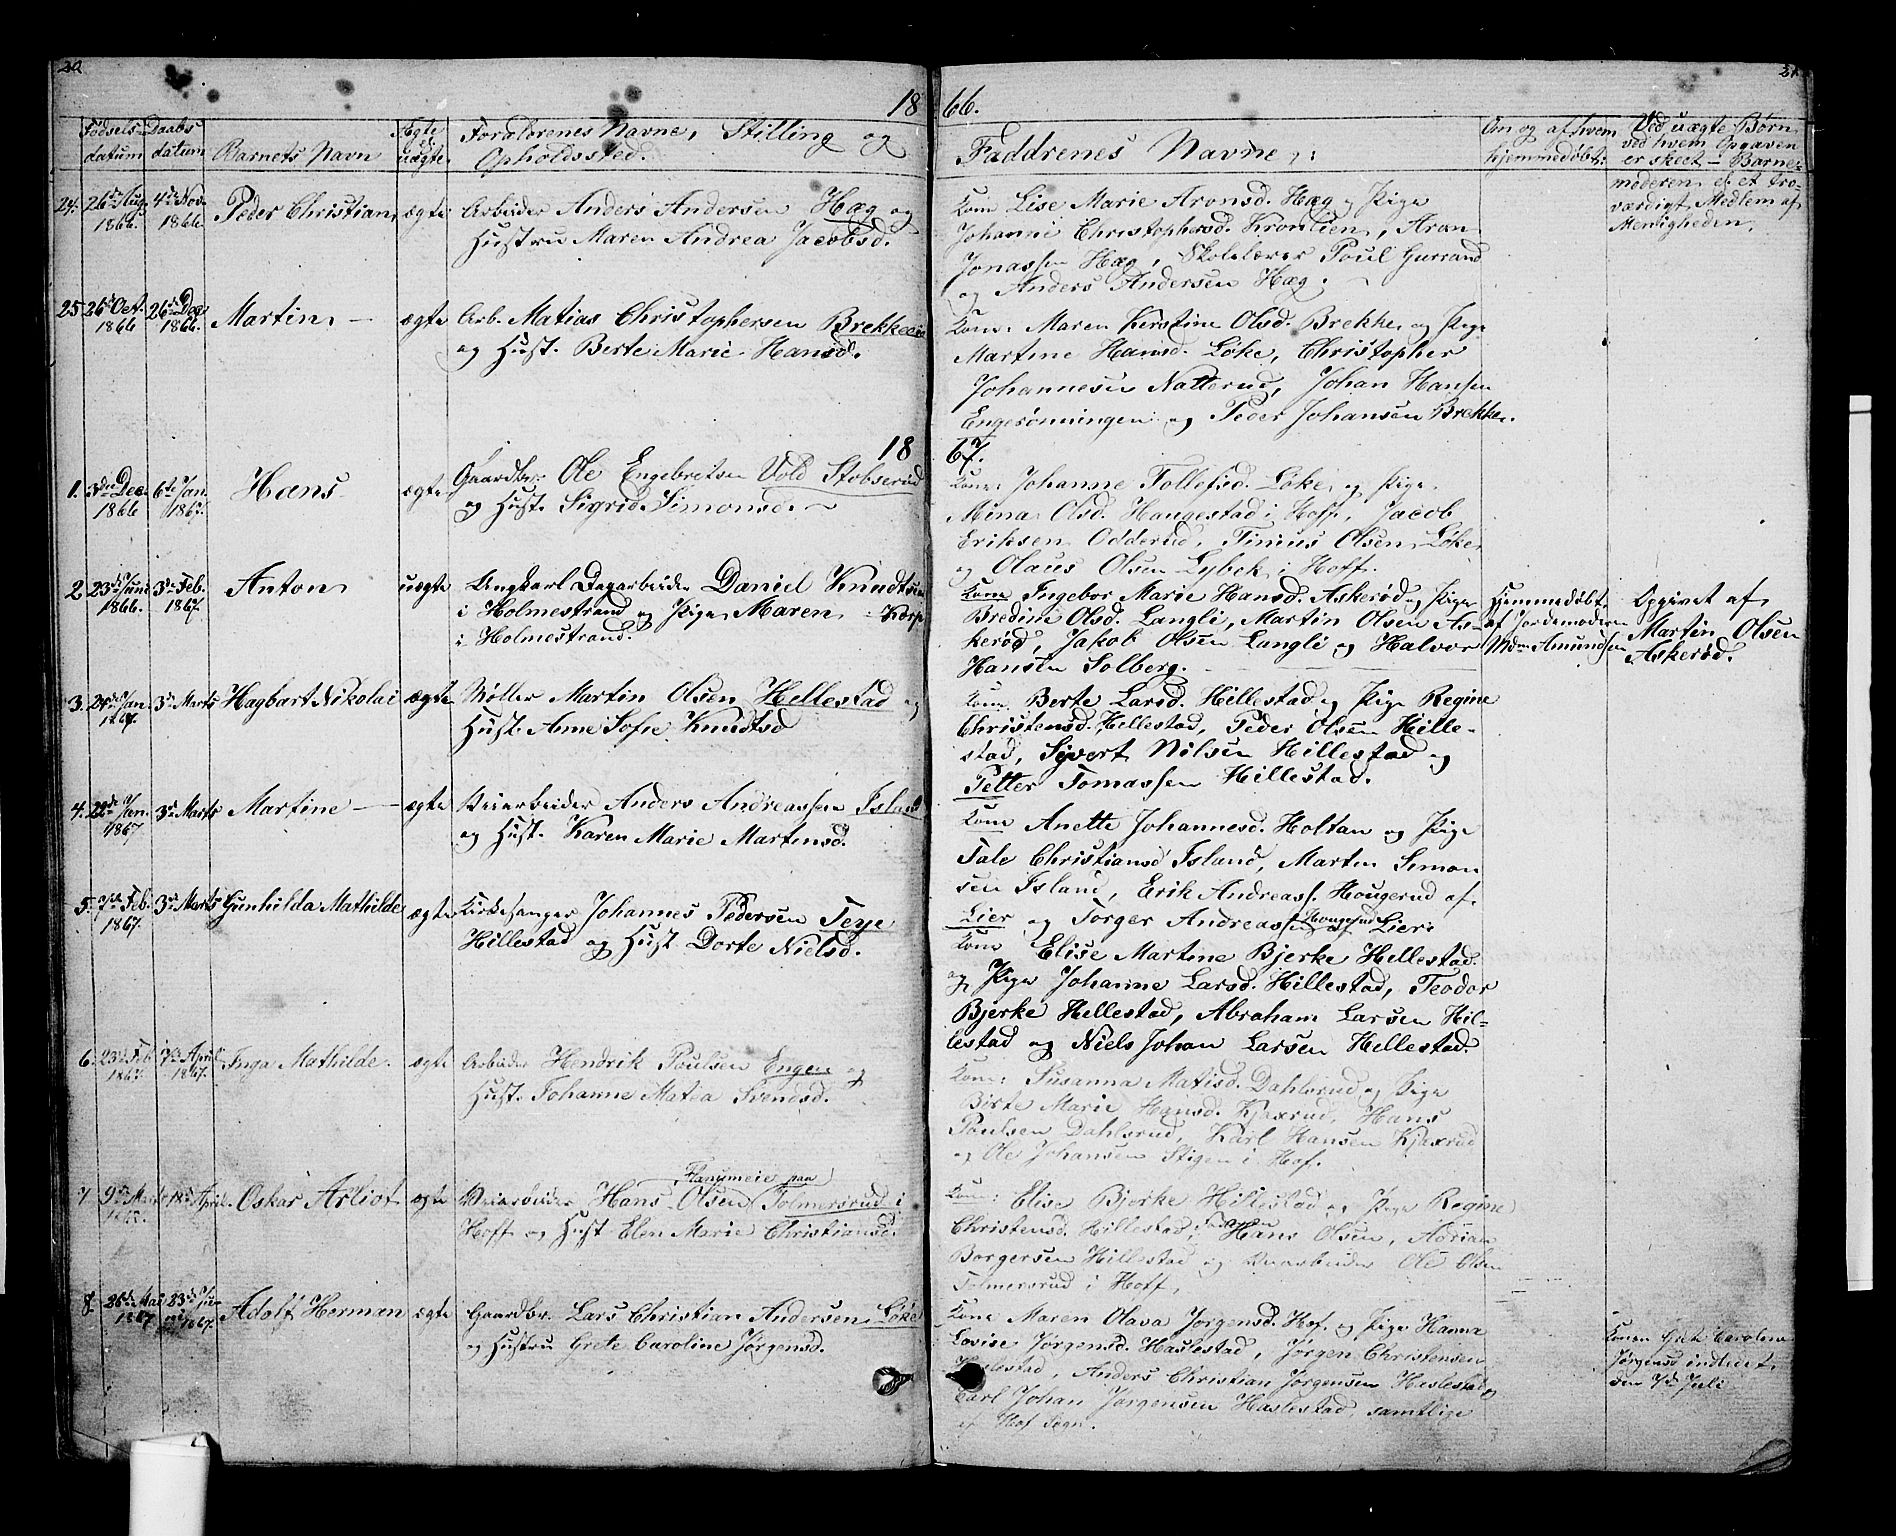 20
18
Fødsels
datum
Daabs
datum
Barnets Navn
Ægte
uægte
Forældrenes Navne, Stilling og
Opholdssted.
24. 26de Aug. 1866. 4de Nov. 1866 Peder Christian, ægte Arbeider Anders Andersen Hæg og
Hustru Maren Andrea Jacobsd.
25. 26de Oct. 1866 26de Dec. 1866. Martin, ægte Arb. Matias Christophersen Brekkeeie
og Hust. Berte Marie Hansd.
18
1. 3die Dec. 1866 6te Jan. 1867. Hans ægte Gaardbr. Ole Engebretsen Vold Stobserød
og Hust. Sigrid Simonsd.
2. 23de Juni 1866. 3de Feb. 1867. Anton uægte Ungkarl Dagarbeider Daniel Knudtsen
i Holmestrand og Pige Maren Korp
i Holmestrand.
3. 24de Jan. 1867. 3de Marts Hagbart Nikolai ægte Møller Martin Olsen Hellestad og
Hust. Anne Sofie Knudtsd
4. 22de Jan. 1867 3de Marts Martine ægte Veiarbeider Anders Andreassen Island
og Hust. Karen Marie Martinsd.
5. 7de Feb. 1867. 3de Marts Gunhilda Mathilde ægte Kirkesanger Johannes Pedersen Teye
Hillestad og Hust Dorte Nielsd.
6. 23de Feb. 1867. 7de April 1867. Inga Mathilde. ægte Arbeider Hendrik Poulsen Engen og
Hust. Johanne Matea Svendsd.
7 9de Marts 1867. 18de April. Oskar Arliot ægte Veiarbeider Hans Olsen Tolmersrud i
Hoff og Hust Elen Marie Christiansd.
8. 26de Mai 1867 23de Juni 1867. Adolf Herman ægte Gaardbr. Lars Christian Andersen Løke
og Hustru Grete Caroline Jørgensd.
21
66.
Faddrenes Navne:
Om og af hvem
hjemmedøbt:
Ved uægte Børn
ved hvem Opgaven
er skeet – Barne-
moderen el. et tro-
værdigt Medlem af
Menigheden.
Kone Lise Marie Aronsd. Hæg og Pige
Johanne Christophersd. Kronlien, Aron
Jonassen Hæg, Skolelærer Poul Gurrand
og Anders Andersen Hæg.
Kone: Maren Kirstine Olsd. Brekke og Pige
Martine Hansd. Løke, Christopher
Johannesen Natterud, Johan Hansen
Engerønningen og Peder Johansen Brekke.
67.
Kone: Johanne Tollefsd. Løke og Pige
Mina Olsd. Haugestad i Hoff, Jacob
Eriksen Odderud, Tinius Olsen Løke
og Olaus Olsen Lybek i Hoff.
Kone Ingebor Marie Hansd. Askerød og Pige
Bredine Olsd. Langli, Martin Olsen As-
kerød, Jakob Olsen Langli og Halvor
Hansen Solberg.
Hjemmedøbt
af Jordemoderen
Mdm Amundsen
Opgivet af
Martin Olsen
Askerød.
Kone Berte Larsd. Hillestad og Pige Regine
Christensd. Hillestad, Peder Olsen Hille-
stad, Syvert Nilsen Hillestad og
Petter Tomassen Hillestad.
Kone Anette Johannesd. Holtan og Pige
Tale Christiansd Island, Marten Simon
sen Island, Erik Andreass. Hougerud af
Lier og Torger Andreassen Hougerud af Lier.
Kone Elise Martine Bjerke Hillestad
og Pige Johanne Larsd. Hillestad, Teodor
Bjerke Hellestad, Abraham Larsen Hil-
lestad og Niels Johan Larsen Hellestad.
Kone: Susanna Matisd. Dahlsrud og Pige
Birte Marie Hansd. Kjaxrud, Hans
Poulsen Dahlsrud, Karl Hansen Kjaxrud
og Ole Johansen Stigen i Hof.
Kone: Elise Bjerke Hillestad og Pige Regine
Christensd. Hillestad, Faderen Hans Olsen, Adrian
Borgersen Hillestad og Veiarbeider Ole Olsen
Tolmersrud i Hoff.
Kone Maren Olava Jørgensd. Hof og Pige Hanna
Lovise Jørgensd. Haslestad, Jørgen Christensen
Haslestad, Anders Christian Jørgensen Haslestad og
Carl Johan Jørgensen Haslestad, samtlige
af Hof Sogn.
Konen Grete Caroline
Jørgensd indledet
den 7de Juli